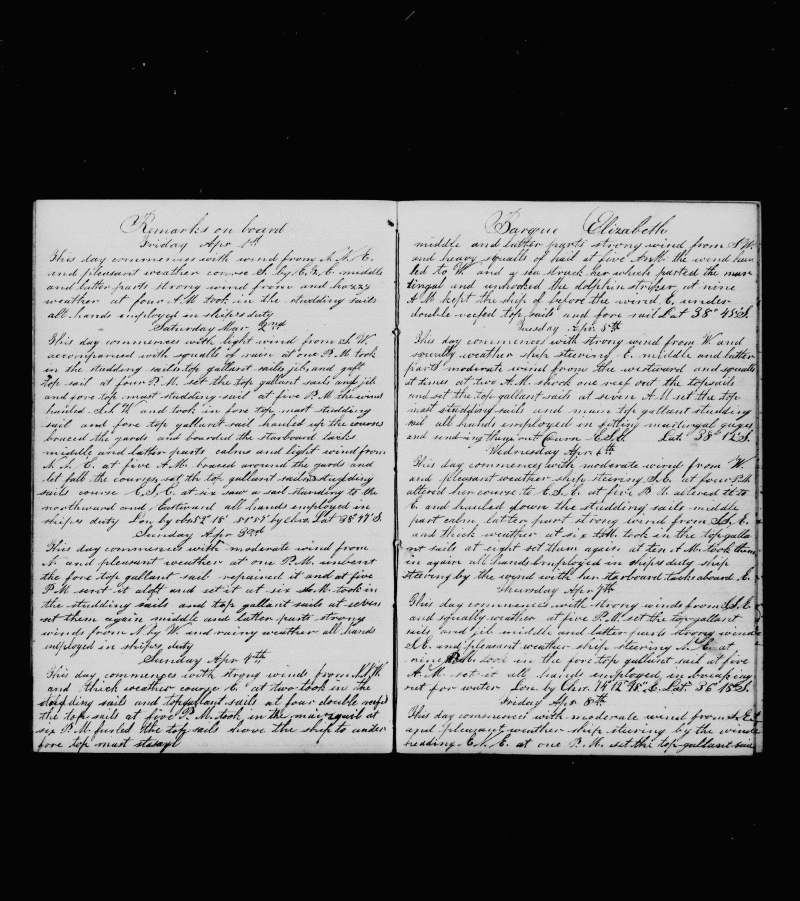 Remarks on board
Friday Apr 1st
This day commences with wind from N.N.E.
and pleasant weather course S. by E. & E. middle
and latter parts strong wind from and hazzy
weather at four A.M took in the studding sails
all hands employed in ships duty
Saturday Mar 2nd
This day commences with light wind from S.W.
accompanied with squalls of rain at one P.M took
in the studding sails top gallant sails jib and gaff
top sail at four P.M. set the top gallant sails and jib
and fore top mast studding sail at five P.M the wind
hauled S.S.W and took in fore top mast studding
sail and fore top gallant sail hauled up the courses
braced the yards and boarded the starboard tacks
middle and latter parts calms and light wind from
N.N.E. at five A.M. braced around the yards and
let fall the courses set the top gallant sails studding
sails course E.S.E. at six saw a sail standing to the
northward and Eastward all hands employed in
ships duty Lon by obs 52° 15' by Chro. Lat 38° 47' S.
Sunday Apr 3rd
This day commences with moderate wind from
N. and pleasant weather at one P.M. unbent
the fore top gallant sail repaired it and at five
P.M sent it aloft and set it at six A.M. took in
the studding sails and top gallant sails at seven
set them again middle and latter parts strong
winds from N by W. and rainy weather all hands
employed in ships duty
Sunday Apr 4th
This day commences with strong winds from N.N.W
and thick weather course E. at two took in the
studding sails and top gallant sails at four double reefed
the top sails at five P.M. took in the main sail at
six P.M furled the top sails hove the ship to under
fore top mast staysail
Barque Elizabeth
middle and latter parts strong wind from S W.
and heavy squalls of hail at five A.M. the wind hau
led to W and a sea struck her which parted the mar
tingal and unhooked the dolphin striker at nine
A.M kept the ship of before the wind E. under
double reefed top sails and fore sail Lat 38° 45' S.
Tuesday Apr 5th
This day commences with strong wind from W. and
squally weather ship steering E. middle and latter
parts moderate wind from the westward and squalls
at times at two A.M. shook one reef out the topsails
and set the top gallant sails at seven A.M set the top
mast studding sails and main top gallant studding
sail all hands employed in fitting martingal guys
and sending them out Course E.S.E. Lat. 38° 12' S.
Wednesday Apr 6th
This day commences with moderate wind from W.
and pleasant weather ship steering S.E. at four P.M.
altered her course to E.S.E. at five P.M. altered it to
E. and hauled down the studding sails middle
part calm latter part strong wind from S.S.E.
and thick weather at six A.M. took in the top galla
nt sails at eight set them again at ten A.M. took them
in again all hands employed in ships duty ship
steering by the wind with her starboard tacks aboard E.
Thursday Apr 7th
This day commences with strong winds from S.S.E.
and squally weather at five P.M. set the top gallant
sails and jib middle and latter parts strong winds
S.E. and pleasant weather ship steering N.E. at
nine took in the fore top gallant sail at five
A.M. set it all hands employed in breaking
out for water Lon by Chro. 74° 12' 45" E. Lat. 36° 18' S.
Friday Apr 8th
This day commences with moderate wind from S.E.
and pleasant weather ship steering by the winds
heading E.N.E. at one P.M. set the top gallant sail